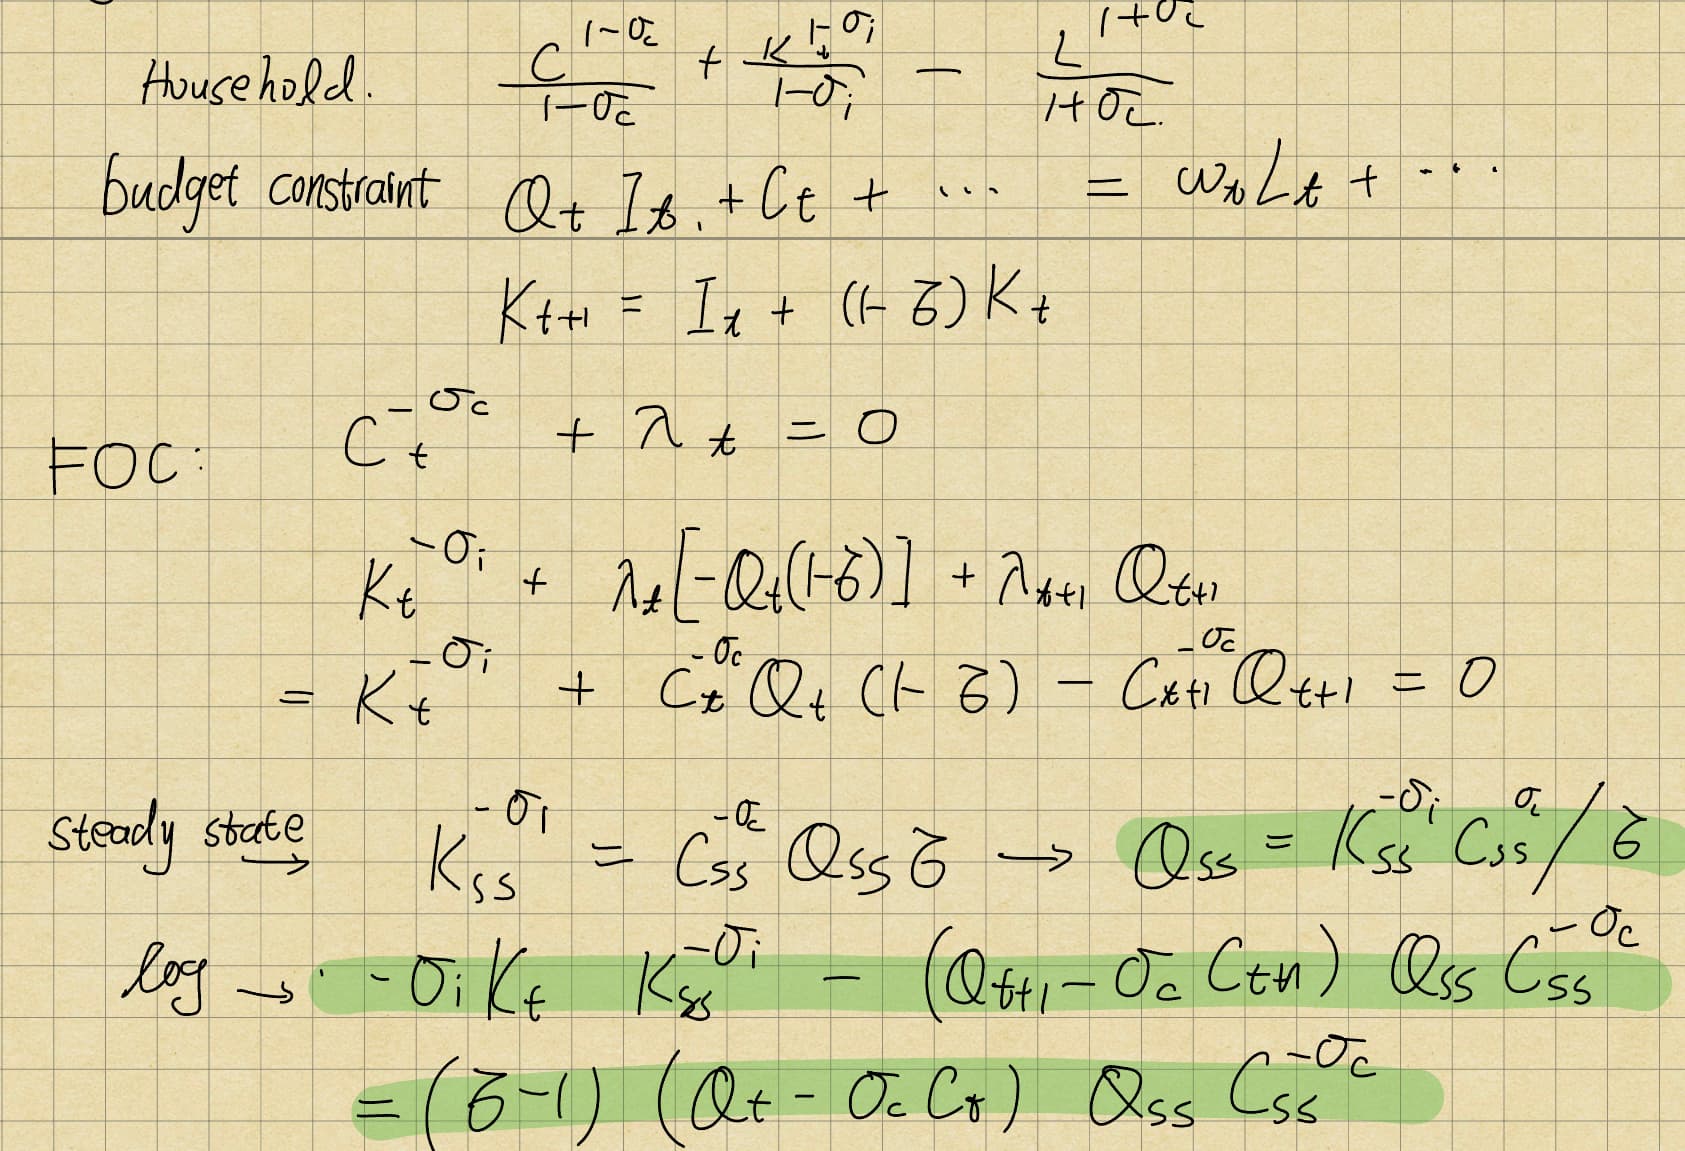 Household. C^{1-σ_c}/(1-σ_c) + K_t^{1-σ_i}/(1-σ_i) - L^{1+σ_c}/(1+σ_c).
budget constraint Q_t I_t. + C_t + ... = w_t L_t + ...
K_{t+1} = I_t + (1-δ) K_t
FOC: C_t^{-σ_c} + λ_t = 0
K_t^{-σ_i} + λ_t [-Q_t(1-δ)] + λ_{t+1} Q_{t+1}
= K_t^{-σ_i} + C_t^{-σ_c} Q_t (1-δ) - C_{t+1}^{-σ_c} Q_{t+1} = 0
steady state → K_{ss}^{-σ_i} = C_{ss}^{-σ_c} Q_{ss} δ → Q_{ss} = K_{ss}^{-σ_i} C_{ss}^{σ_c} / δ
log → -σ_i K_t K_{ss}^{-σ_i} - (Q_{t+1} - σ_c C_{t+1}) Q_{ss} C_{ss}^{-σ_c}
= (δ-1) (Q_t - σ_c C_t) Q_{ss} C_{ss}^{-σ_c}